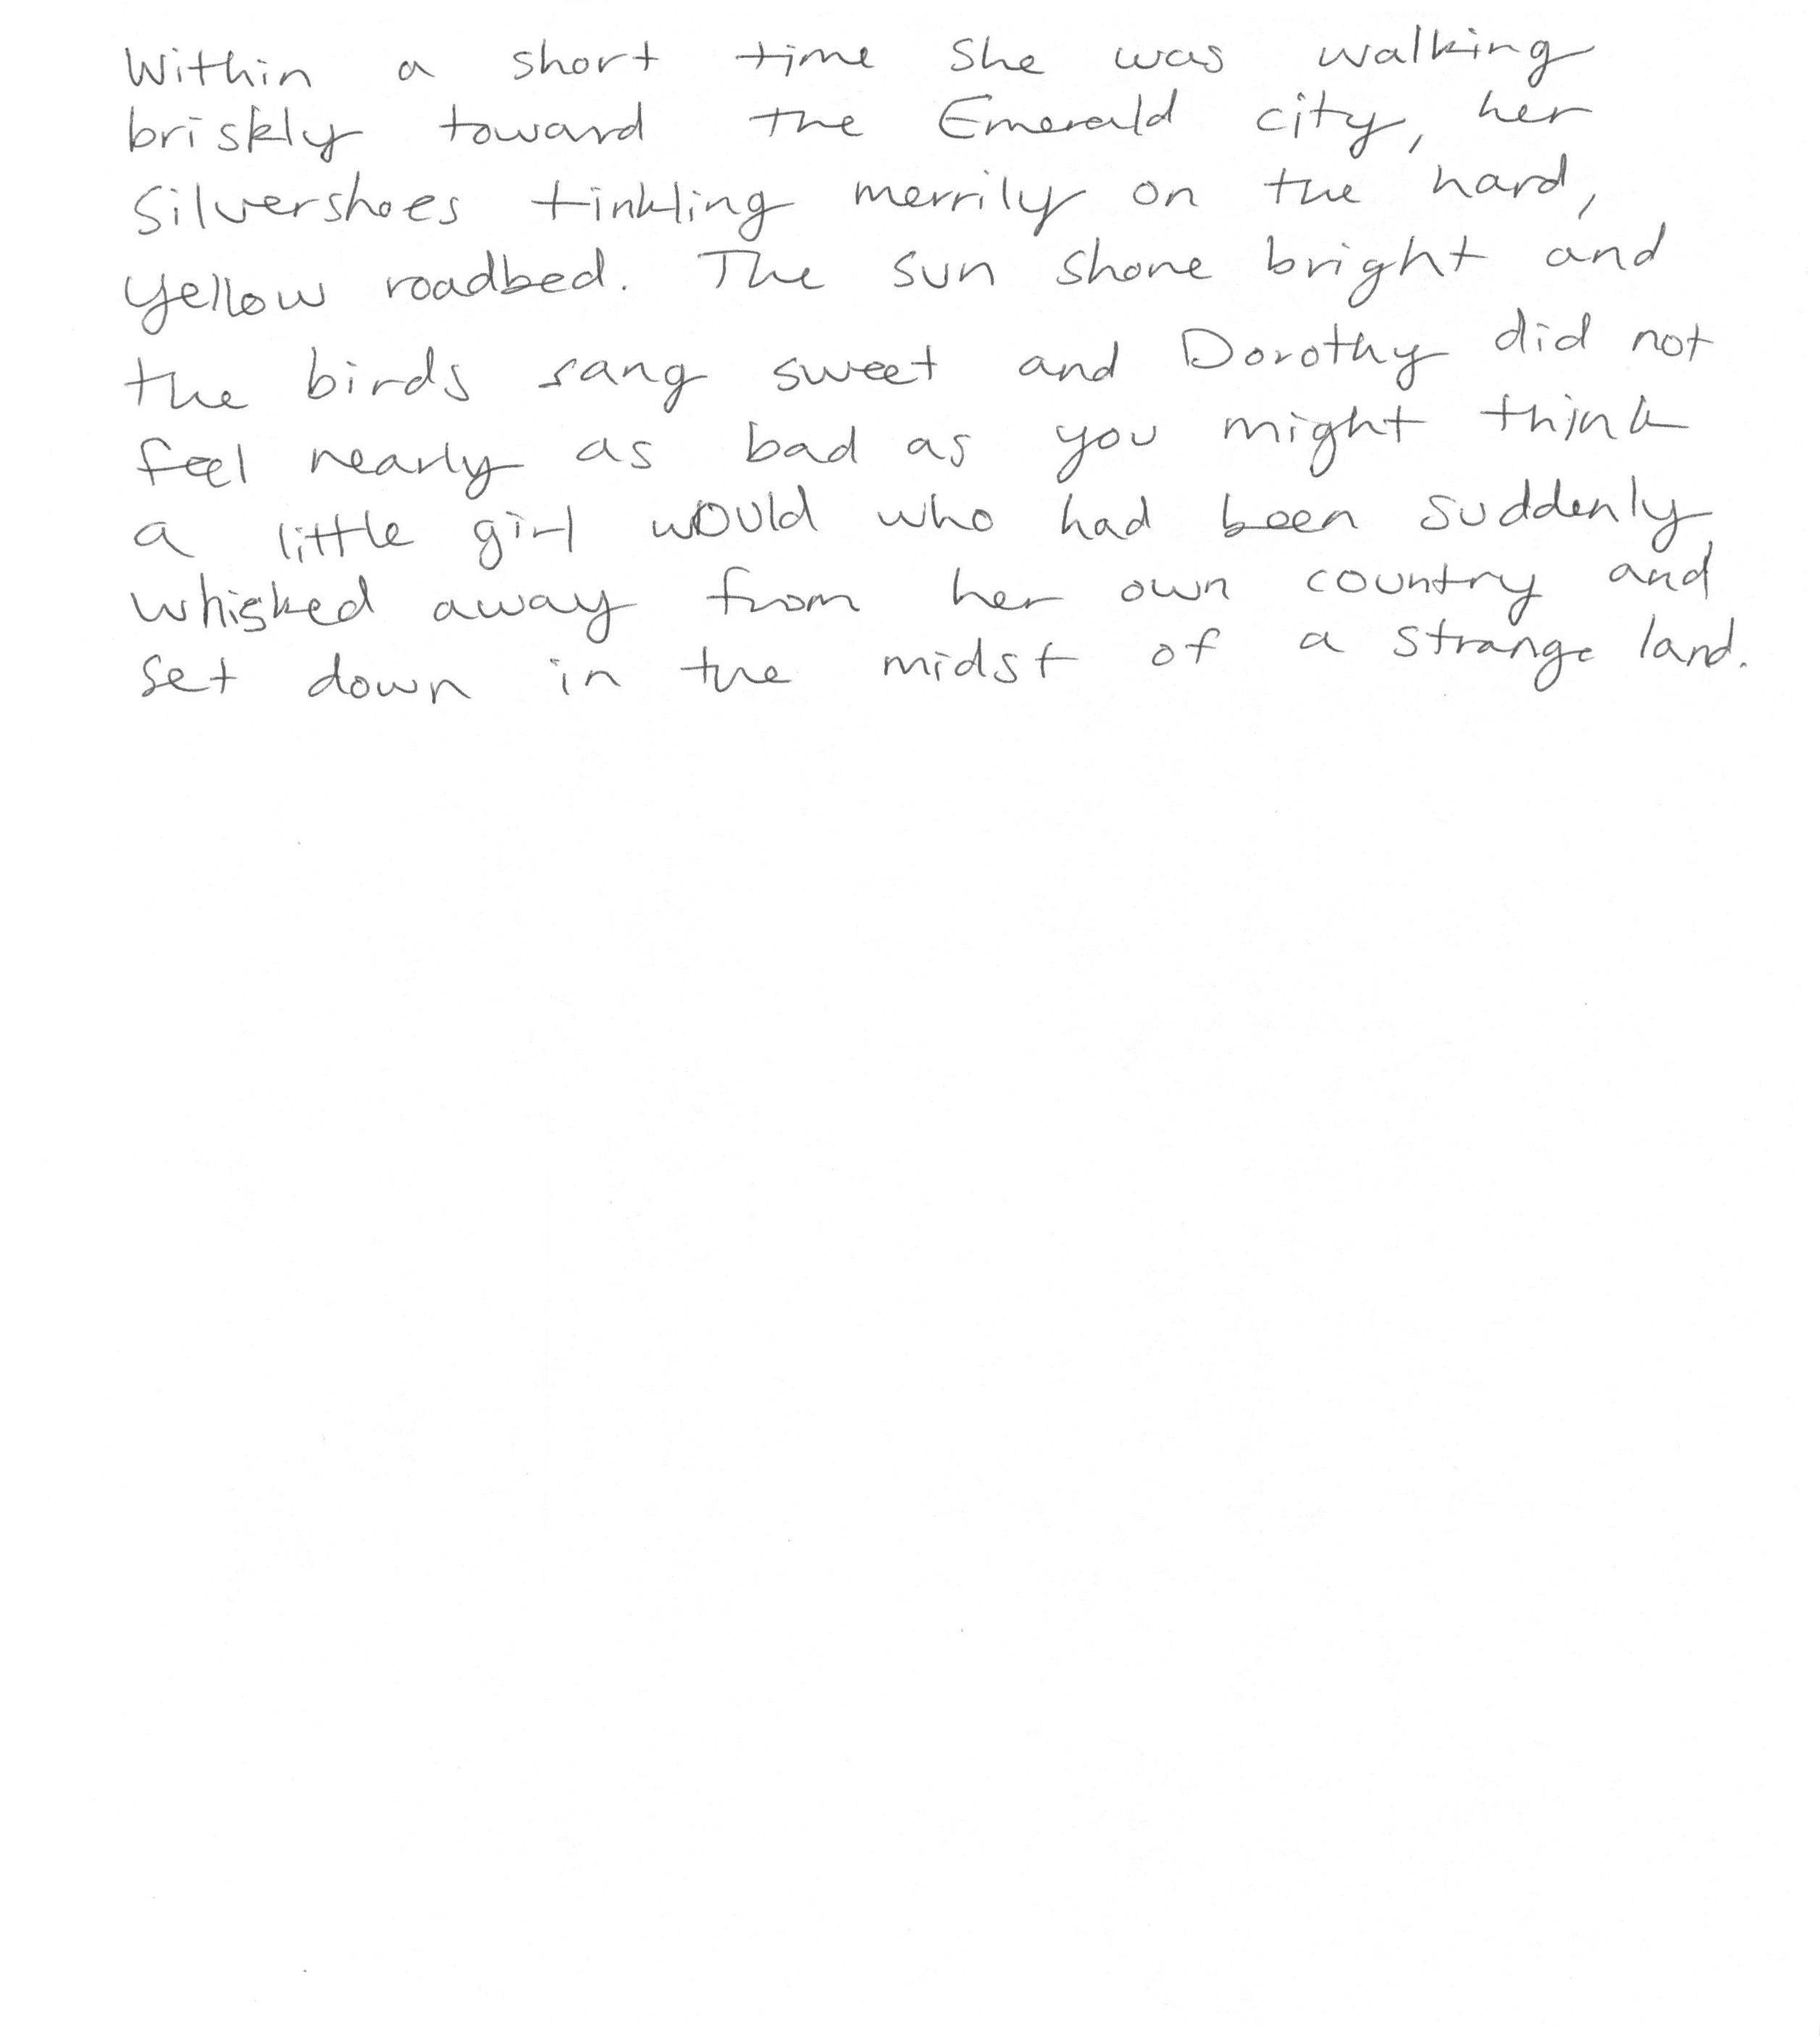 Within a short time she was walking
briskly toward the Emerald city, her
Silvershoes tinkling merrily on the hard,
yellow roadbed. The sun shone bright and
the birds sang sweet and Dorothy did not
feel nearly as bad as you might think
a little girl would who had been suddenly
whisked away from her own country and
set down in the midst of a strange land.